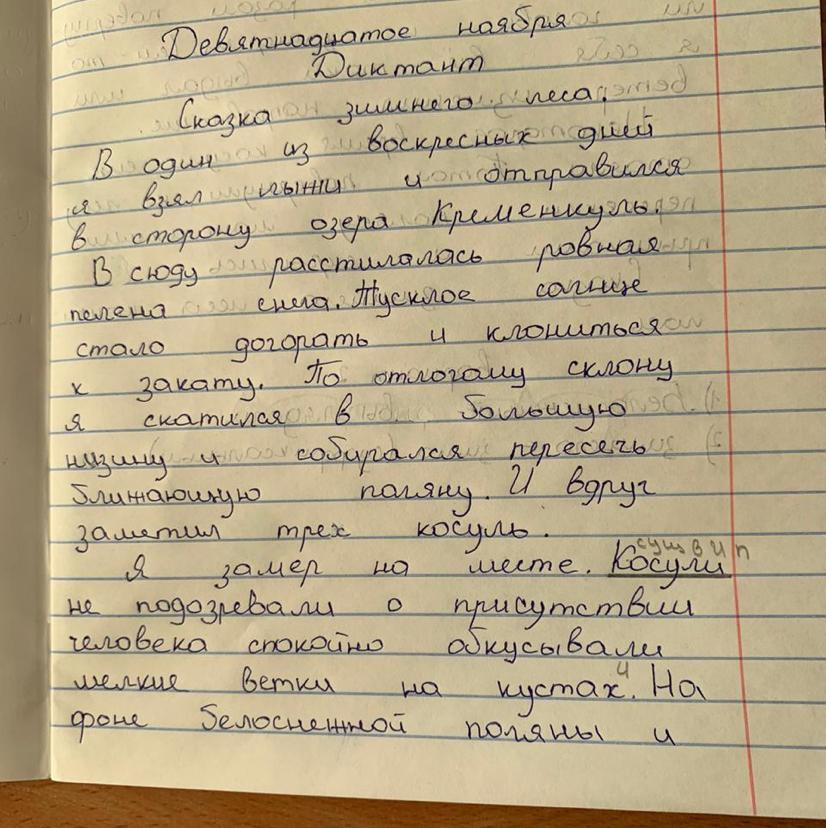 Девятнадцатое ноября
Диктант
Сказка зимнего леса.
В один из воскресных дней
я взял лыжи и отправился
в сторону озера Кременкуль.
В сюду расстилалась ровная
пелена снега. Тусклое солнце
стало догорать и клониться
к закату. По отлогому склону
я скатился в большую
низину и собирался пересечь
ближающую поляну. И вдруг
заметил трех косуль.
Я замер на месте. Косули
сущ в И п
не подозревали о присутствии
человека спокойно обкусывали
мелкие ветки на кустах. На
и
фоне белоснежной поляны и